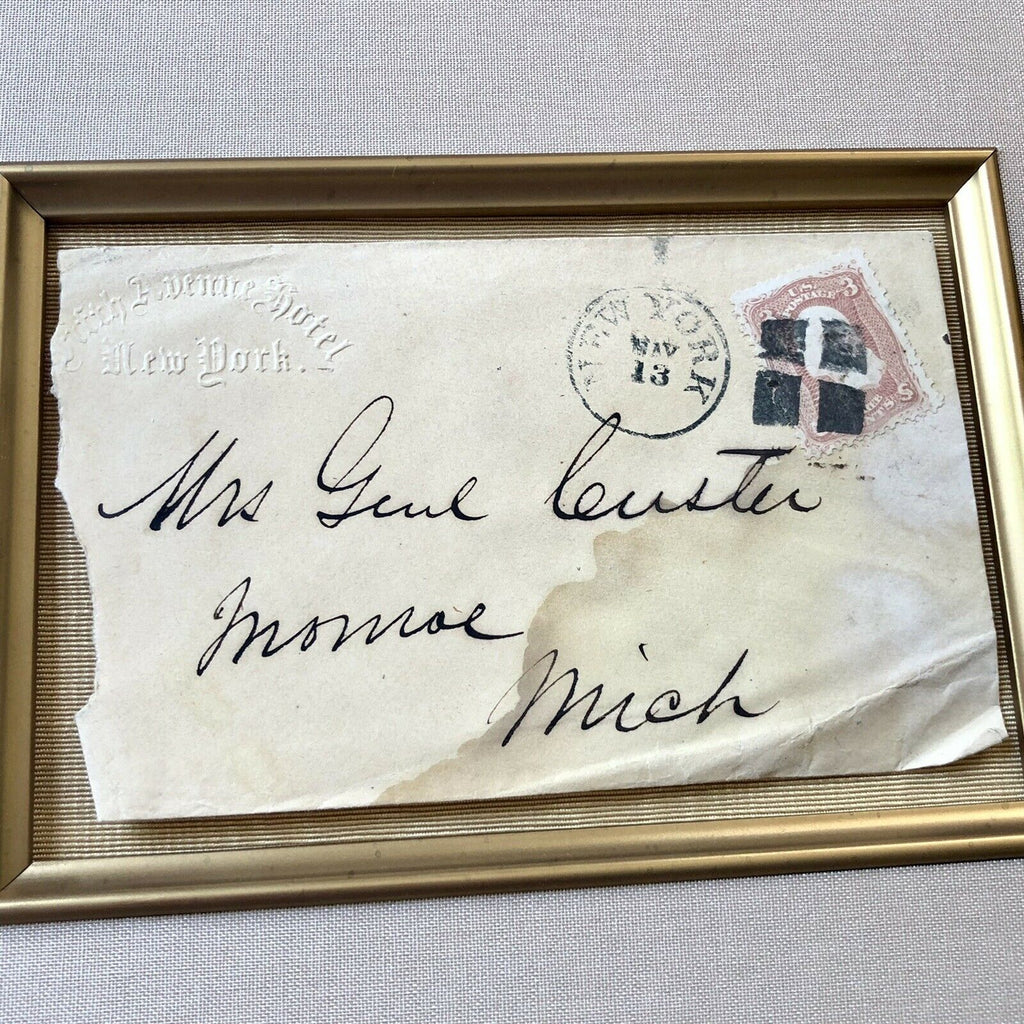 Fifth Avenue Hotel
New York.
NEW YORK
MAY
13
U.S.
POSTAGE
3
U.S.
Mrs Genl Custer
Monroe
Mich